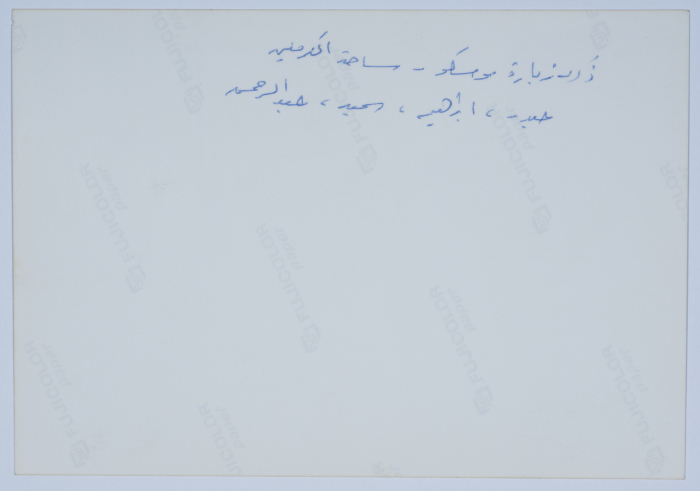 زيارة موسكو - ساحة الكرملين
حيدر، ابراهيم، سعيد، عبد الرحمن
FUJICOLOR
FUJICOLOR
FUJICOLOR
FUJICOLOR
FUJICOLOR
FUJICOLOR
FUJICOLOR
FUJICOLOR
FUJICOLOR